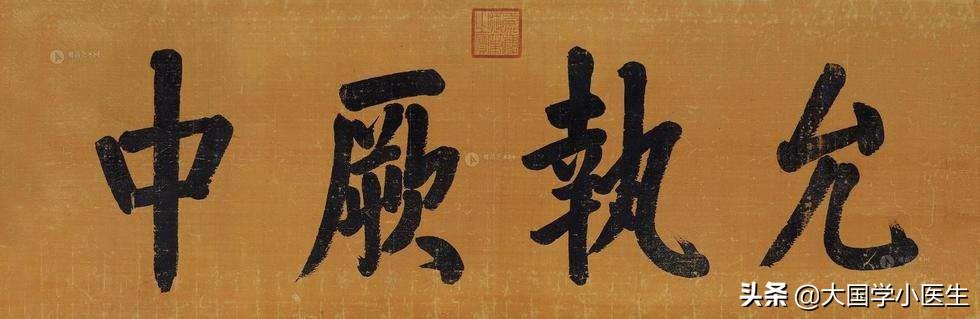 允執厥中
头条 @大国学小医生